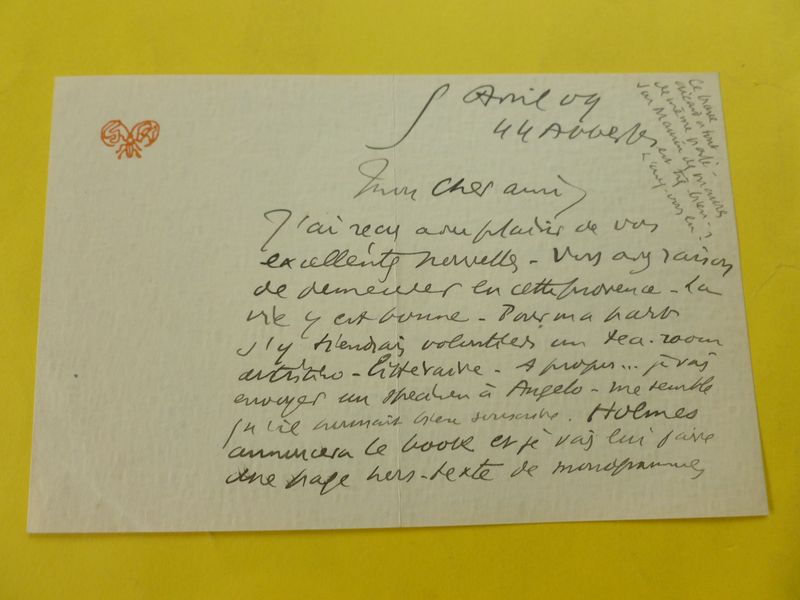 5 Avril 09
44 Abbesses
Mon cher ami,
J'ai reçu avec plaisir de vos
excellentes nouvelles - Vous avez raison
de demeurer en cette provence - La
vie y est bonne - Pour ma part
j'y tiendrais volontiers un tea-room
artistico-littéraire - A propos... je vais
envoyer un specimen à Angelo - me semble
qu'il aimait bien souscrire. Holmes
annoncera le book et je vais lui faire
une page hors-texte de monogrammes
Ce brave
de même parlé
sur Maurin des maures
est très bien -